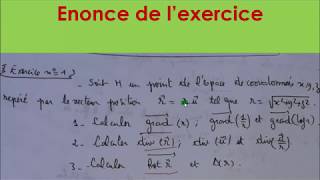 Enonce de l'exercice
Exercice n° 1
Soit M un point de l'espace de coordonnées x, y, z
repéré par le vecteur position r⃗ = r u⃗ tel que r = √x²+y²+z².
1- Calculer grad (r), grad (1/r) et grad(log r)
2- Calculer div (r⃗), div (u⃗) et div(
3- Calculer Rot r⃗ et Δ(r).